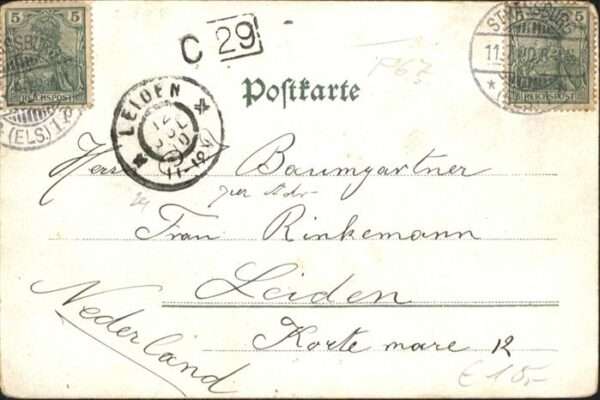 5
5
REICHSPOST
C 29
LEIDEN
12
11-12
(ELS.)
11
Postkarte
Herr Baumgartner
per Adr
Frau Rinkemann
Leiden
Korte mare 12
Nederland
€ 15,-